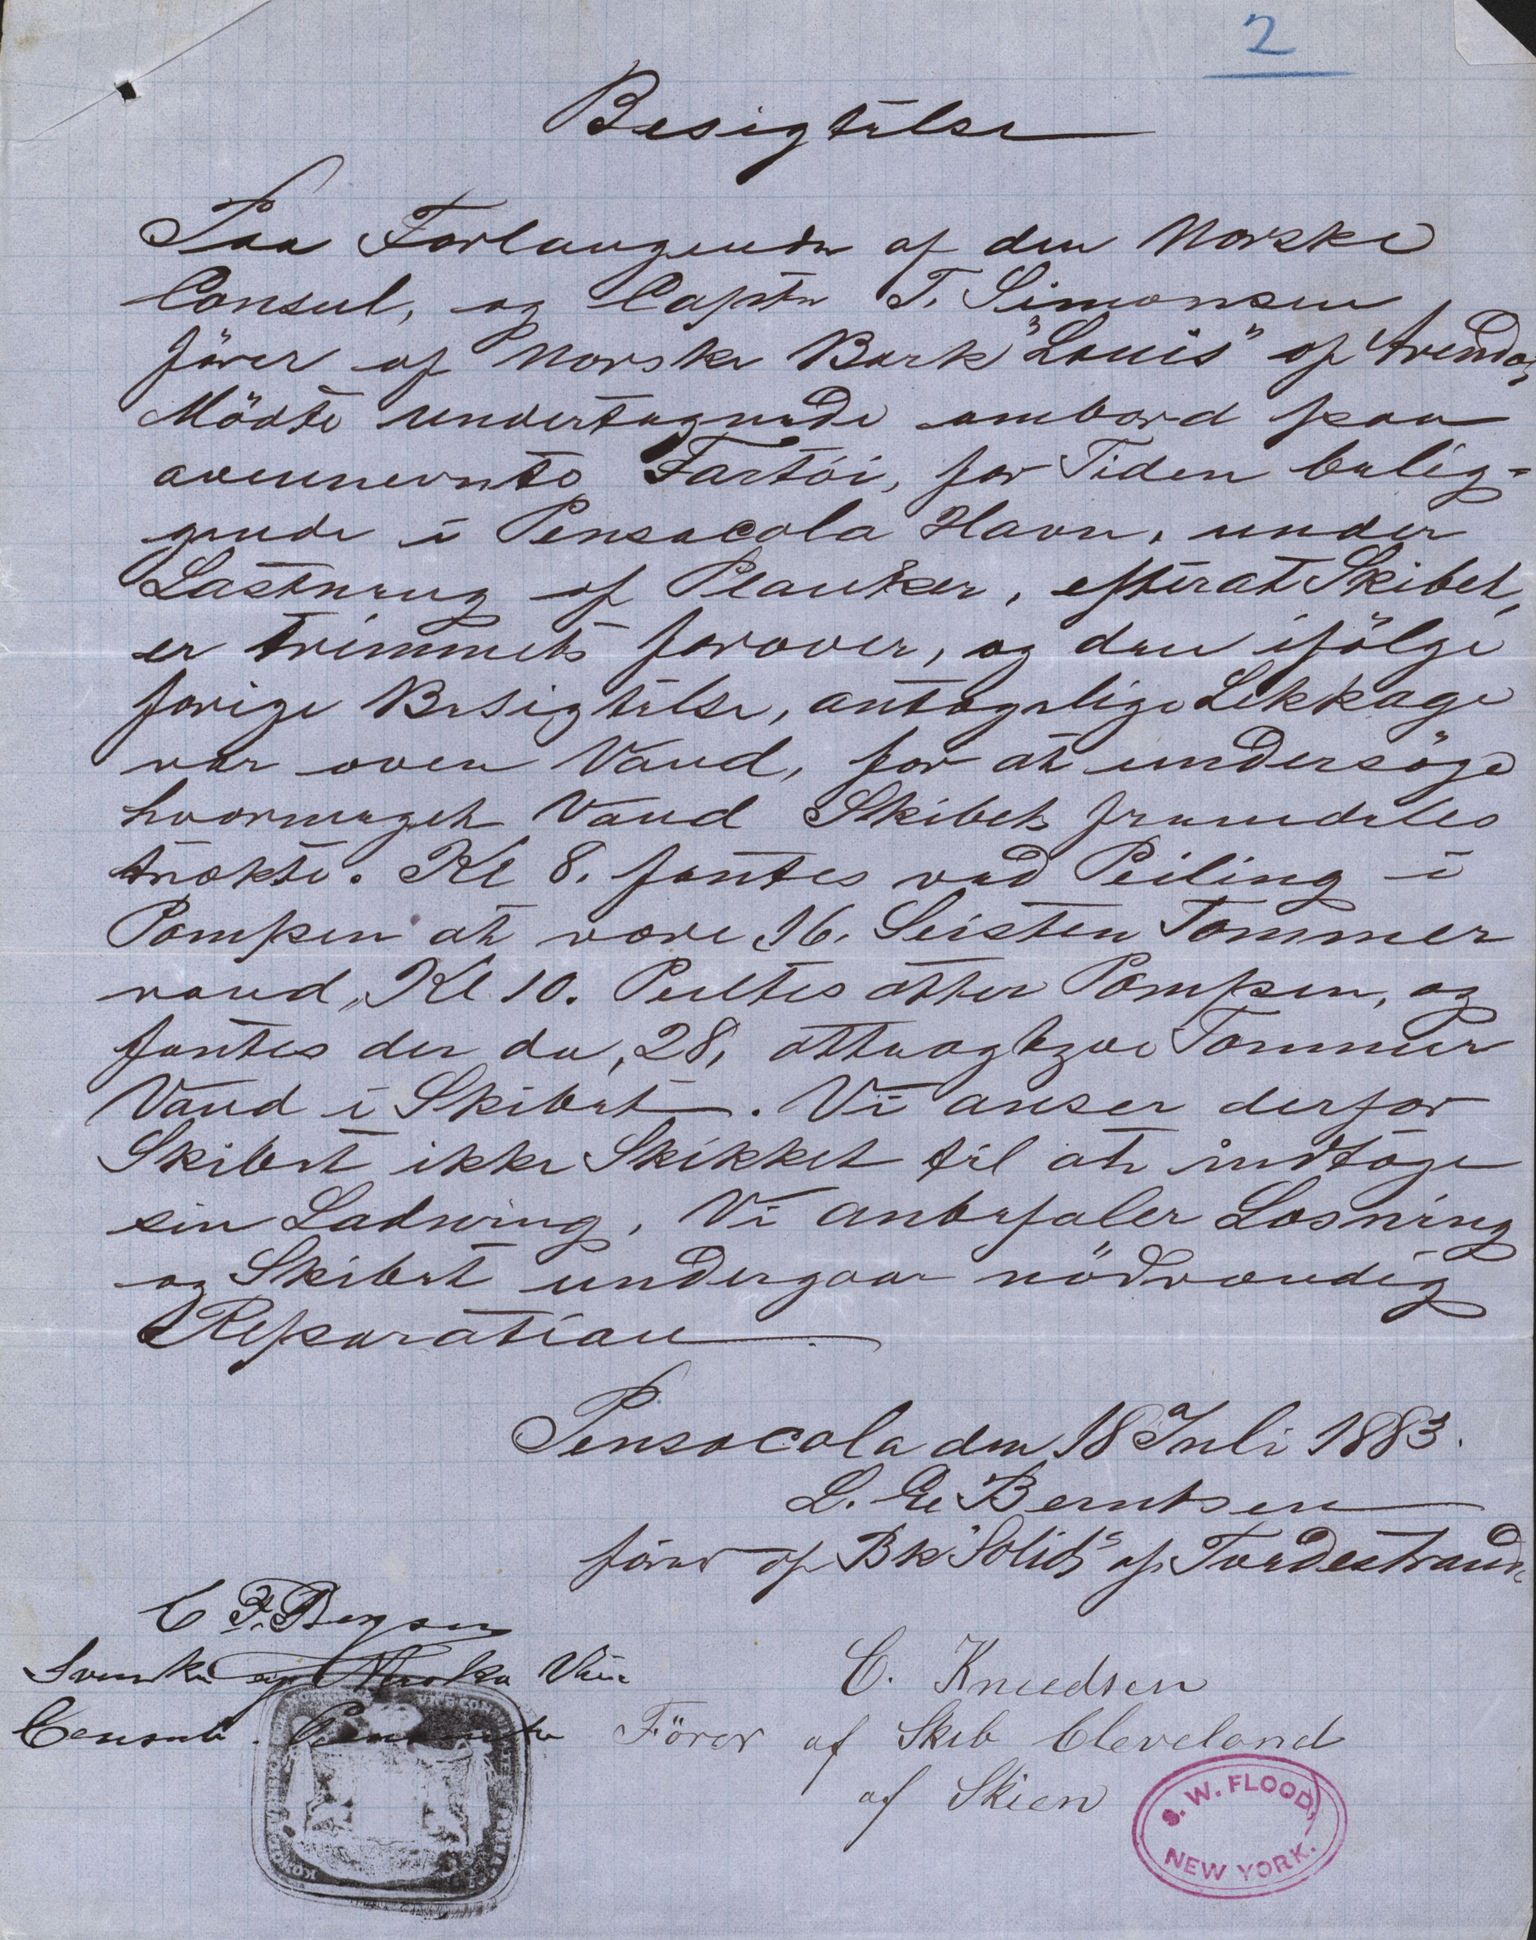 2
Besigtelse
Paa Forlangende af den Norske
Consul, og Captn T. Simonsen
förer af Norske Bark "Louis" af Arendal,
Mödte undertegnede ombord paa
ovennevnte Fartöi, for Tiden belig=
gende i Pensacola Havn, under
Lastning af Planker, efterat Skibet,
er trimmets forover, og den ifölge
forige Besigtelse, antagelige Lekkage
var oven Vand, for at undersöge
hvormeget Vand Skibet fremdeles
trækte. Kl 8. fantes ved Peiling i
Pompen at være 16. Seisten Tommer
vand, Kl 10. Peiltes atter Pompen, og
fantes der da, 28, otteogtyve Tommer
Vand i Skibet. Vi anser derfor
Skibet ikke Skikket til at indtage
sin Ladning, Vi anbefaler Losning
og Skibet undergaar nödvændig
Reparation
Pensacola den 18 Juli 1883.
L. E. Berntsen
förer af Bk "Solid" af Tvedestrand
C F. Bergsen
Svenske og Norske Vice
Consul.
C. Knudsen
Förer af Skib Cleveland
af Skien
S. W. FLOOD,
NEW YORK.